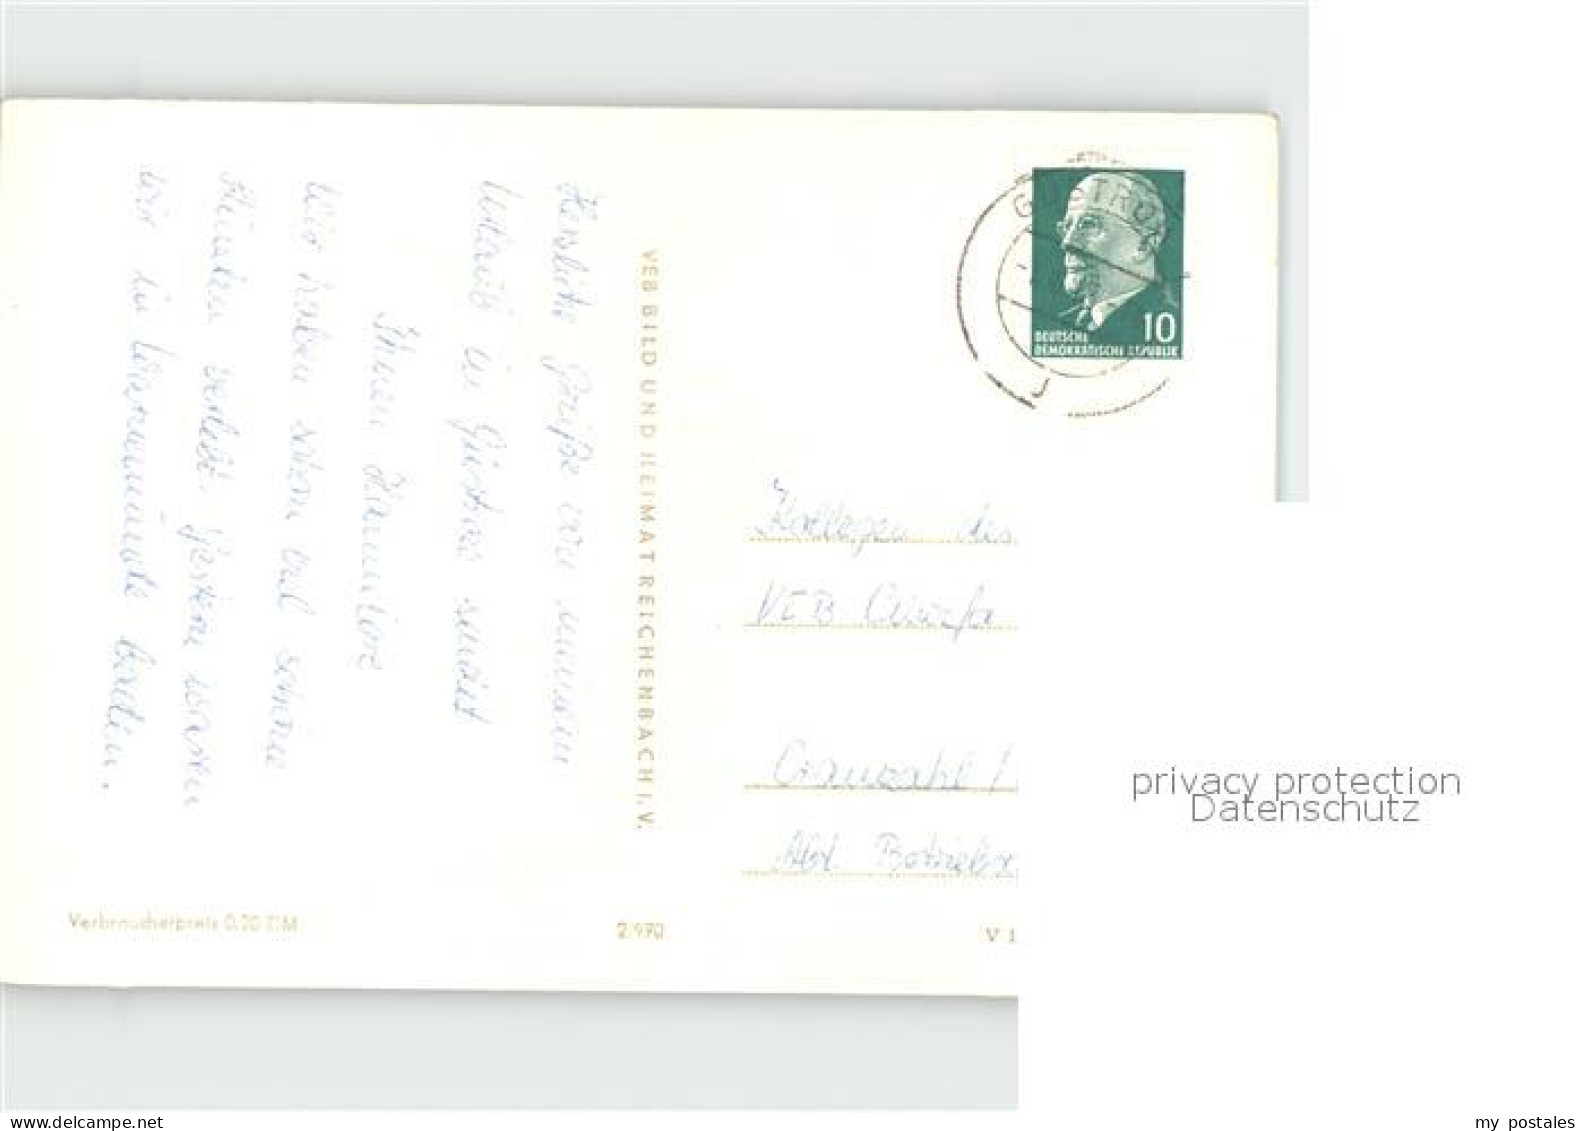 Herzliche Grüße von meinem
Urlaub in Güstrow sendet
Ihnen
Wir haben schon viel schöne
Stunden verlebt. Gestern waren
wir in Warnemünde baden.
VEB BILD UND HEIMAT REICHENBACH I. V.
GÜSTROW
10
DEUTSCHE
DEMOKRATISCHE REPUBLIK
Kollegen des
VEB
Cranzahl /
Abt. Betriebs
Verbraucherpreis 0,20 DM
2/970
V 1
privacy protection
Datenschutz
www.delcampe.net
my postales